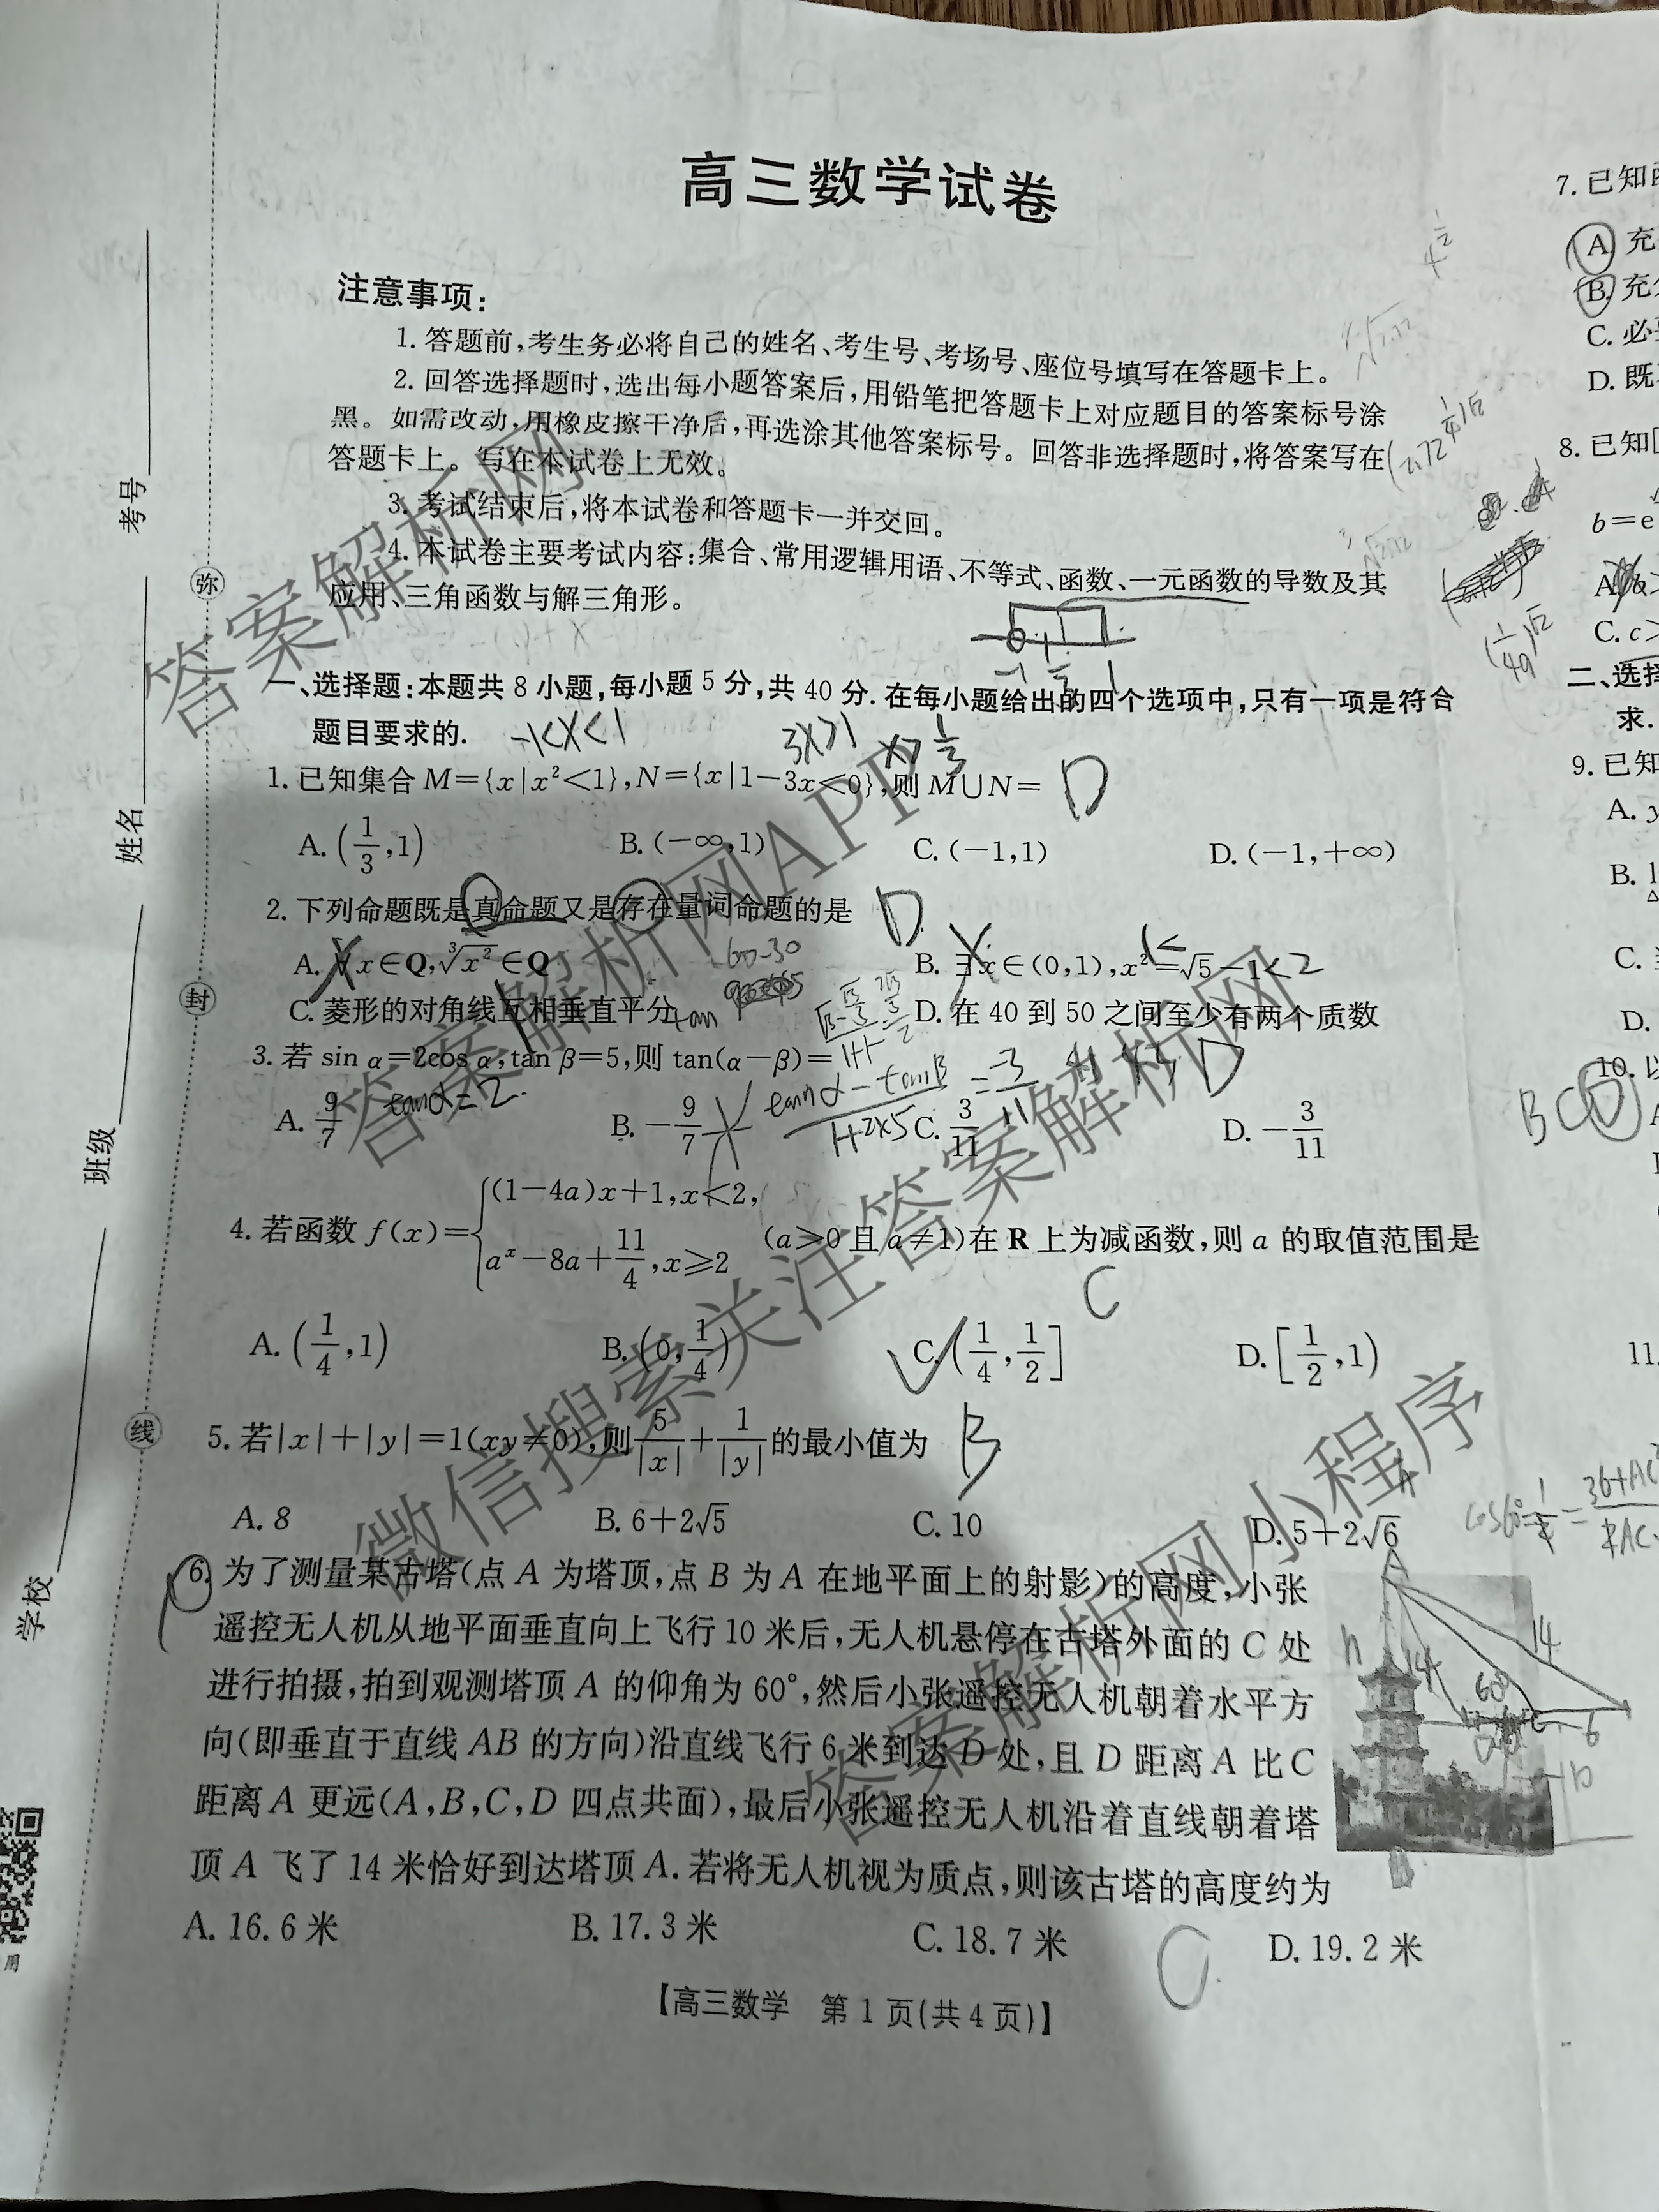 高三数学试卷
注意事项:
1. 答题前,考生务必将自己的姓名、考生号、考场号、座位号填写在答题卡上。
2. 回答选择题时,选出每小题答案后,用铅笔把答题卡上对应题目的答案标号涂
黑。如需改动,用橡皮擦干净后,再选涂其他答案标号。回答非选择题时,将答案写在
答题卡上。写在本试卷上无效。
3. 考试结束后,将本试卷和答题卡一并交回。
4. 本试卷主要考试内容:集合、常用逻辑用语、不等式、函数、一元函数的导数及其
应用、三角函数与解三角形。
一、选择题:本题共 8 小题,每小题 5 分,共 40 分. 在每小题给出的四个选项中,只有一项是符合
题目要求的.
-1<x<1 3x>1 x>1/3
1. 已知集合 M={x|x²<1},N={x|1-3x<0},则 M∪N= D
A. (1/3,1) B. (-∞,1) C. (-1,1) D. (-1,+∞)
2. 下列命题既是真命题又是存在量词命题的是 D
A. ∀x∈Q,∛x²∈Q B. ∃x∈(0,1),x²=√5-1<2
C. 菱形的对角线互相垂直平分 D. 在 40 到 50 之间至少有两个质数
3. 若 sin α=2cos α,tan β=5,则 tan(α-β)= D
tanα=2 tanα-tanβ/1+2×5 =-3/11
A. 9/7 B. -9/7 C. 3/11 D. -3/11
4. 若函数 f(x)={(1-4a)x+1,x<2, a^x-8a+11/4,x≥2 (a>0 且 a≠1)在 R 上为减函数,则 a 的取值范围是
C
A. (1/4,1) B. (0,1/4) C. (1/4,1/2] D. [1/2,1)
5. 若|x|+|y|=1(xy≠0),则5/|x|+1/|y|的最小值为 B
A. 8 B. 6+2√5 C. 10 D. 5+2√6
6. 为了测量某古塔(点 A 为塔顶,点 B 为 A 在地平面上的射影)的高度,小张
遥控无人机从地平面垂直向上飞行 10 米后,无人机悬停在古塔外面的 C 处
进行拍摄,拍到观测塔顶 A 的仰角为 60°,然后小张遥控无人机朝着水平方
向(即垂直于直线 AB 的方向)沿直线飞行 6 米到达 D 处,且 D 距离 A 比 C
距离 A 更远(A,B,C,D 四点共面),最后小张遥控无人机沿着直线朝着塔
顶 A 飞了 14 米恰好到达塔顶 A. 若将无人机视为质点,则该古塔的高度约为
A. 16.6 米 B. 17.3 米 C. 18.7 米 D. 19.2 米
C
【高三数学 第 1 页(共 4 页)】
考号
姓名
班级
学校
弥
封
线
7. 已知
A. 充
B. 充
C. 必
D. 既
8. 已知
b=e
C. c>
二、选择
求.
9. 已知
A. y
B.
C.
D.
10. 以
BCD
11.
答案解析网
答案解析网APP
微信搜索关注答案解析网
答案解析网小程序